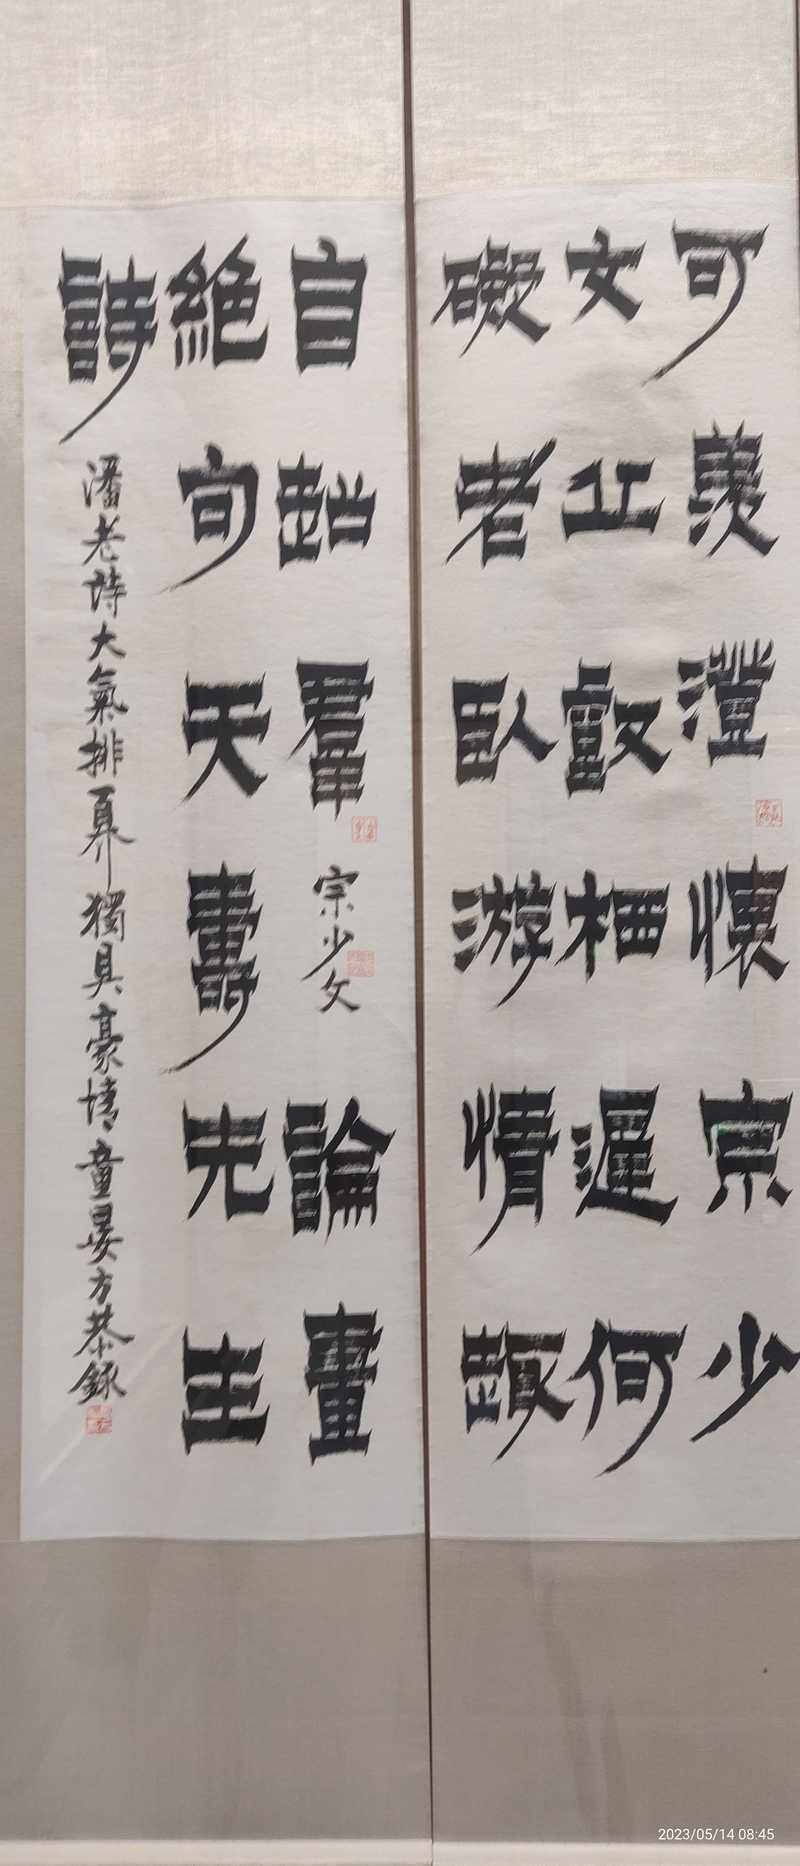 可羨澄懷宗少
文丘壑栖遲何
礙者臥游情趣
自超羣宗少文論畫
絕句天壽先生
詩潘老詩大氣排奡獨具豪情童晏方恭錄
2023/05/14 08:45